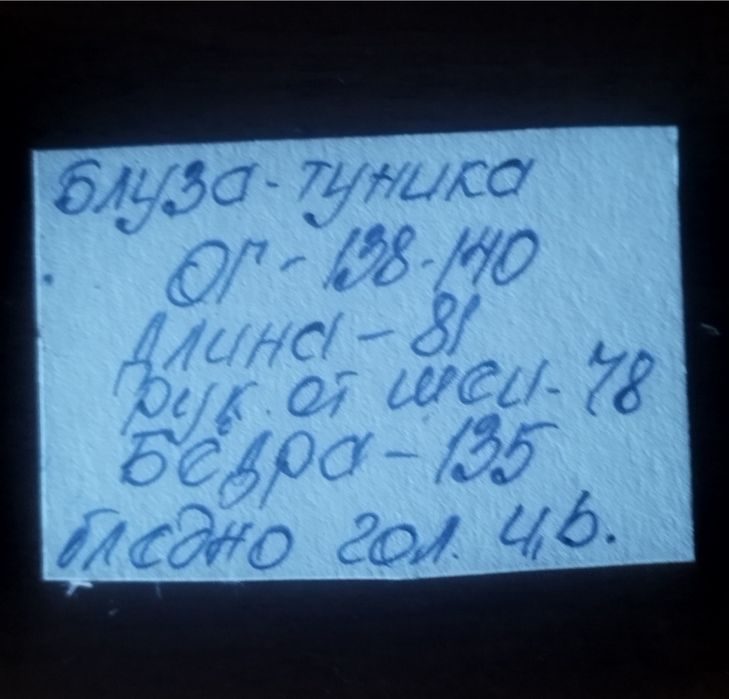 Блуза-туника
ОГ-138-140
Длина-81
Рук. от шеи-78
Бёдра-135
бледно гол. ц,в.